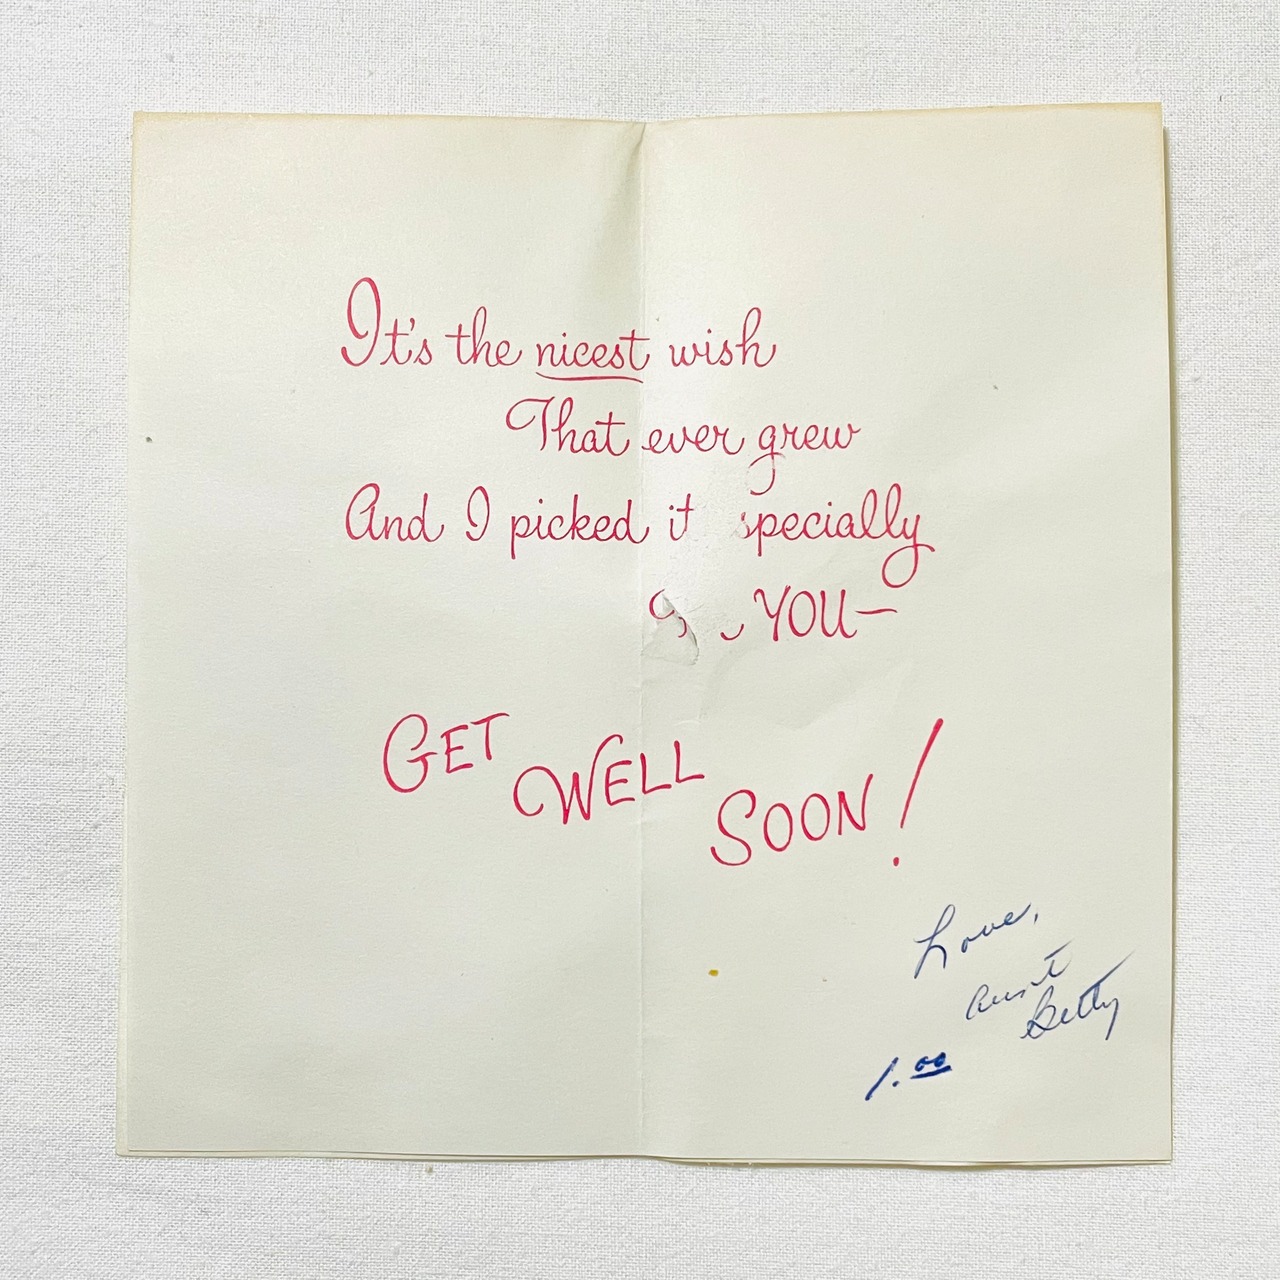 It's the nicest wish
That ever grew
And I picked it specially
YOU—
GET WELL SOON!
Love,
Aunt
Betty
1.00